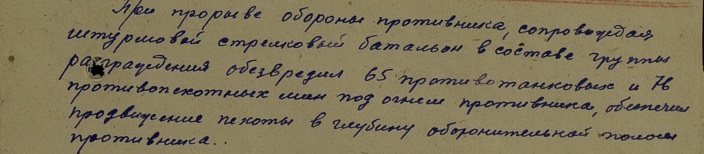 При прорыве обороны противника, сопровождая
штурмовой стрелковый батальон в составе группы
разграждения обезвредил 65 противотанковых и 76
противопехотных мин под огнем противника, обеспечил
продвижение пехоты в глубину оборонительной полосы
противника..